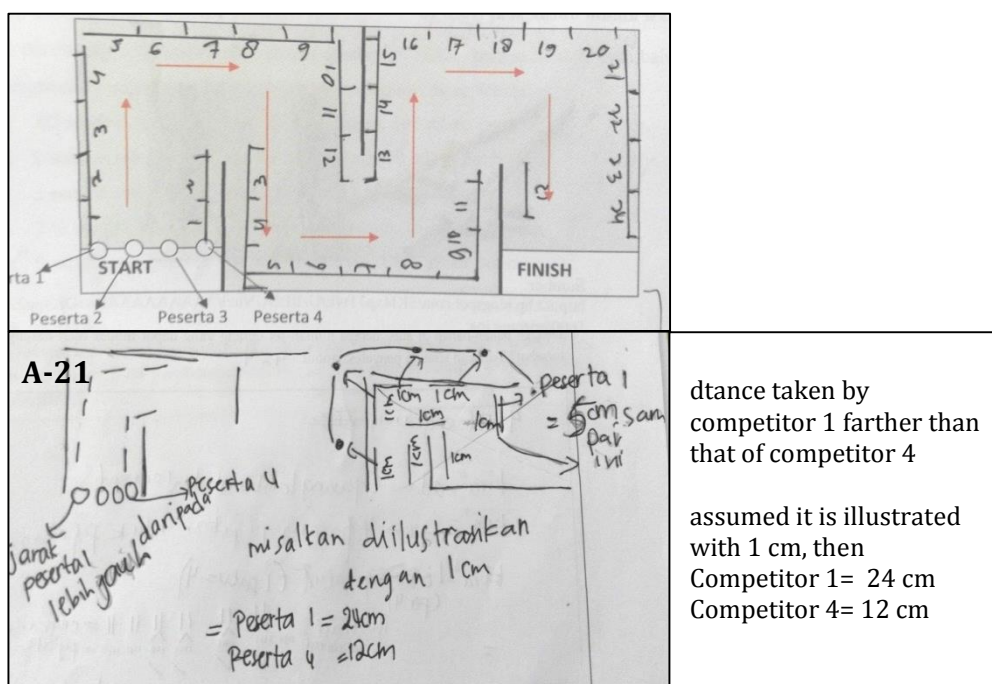 5 6 7 8 9 16 17 18 19 20
4 3 2
10 11 12
15 14 13
21 22 23 24
1 2
3 4
5 6 7 8
9 10 11
12
START
FINISH
rta 1
Peserta 2 Peserta 3 Peserta 4
A-21
Peserta 4
Jarak
peserta 1
lebih jauh
daripada
1cm 1cm
1cm
1cm
1cm
1cm
1cm
1cm
Peserta 1
= 5cm
Dari
ini
misalkan diilustrasikan
dengan 1 cm
= Peserta 1 = 24cm
Peserta 4 = 12cm
dtance taken by
competitor 1 farther than
that of competitor 4
assumed it is illustrated
with 1 cm, then
Competitor 1= 24 cm
Competitor 4= 12 cm